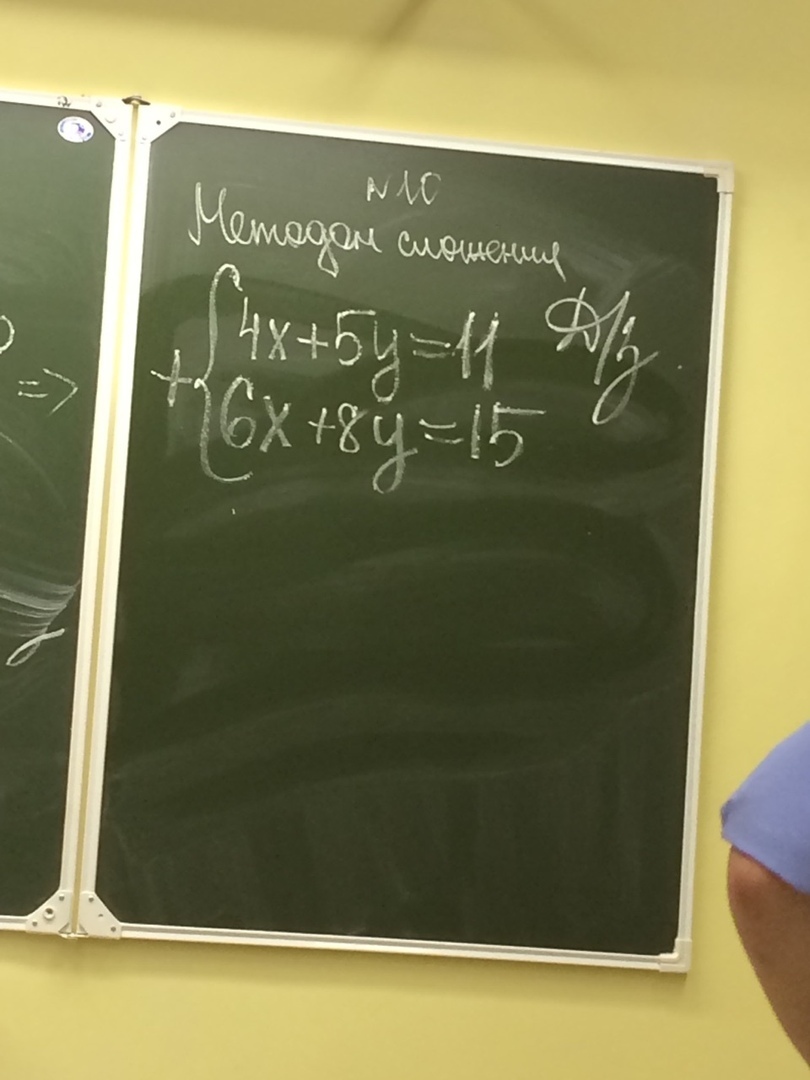 N10
Методом сложения
4x+5y=11 Д/з
+{
6x+8y=15
=>